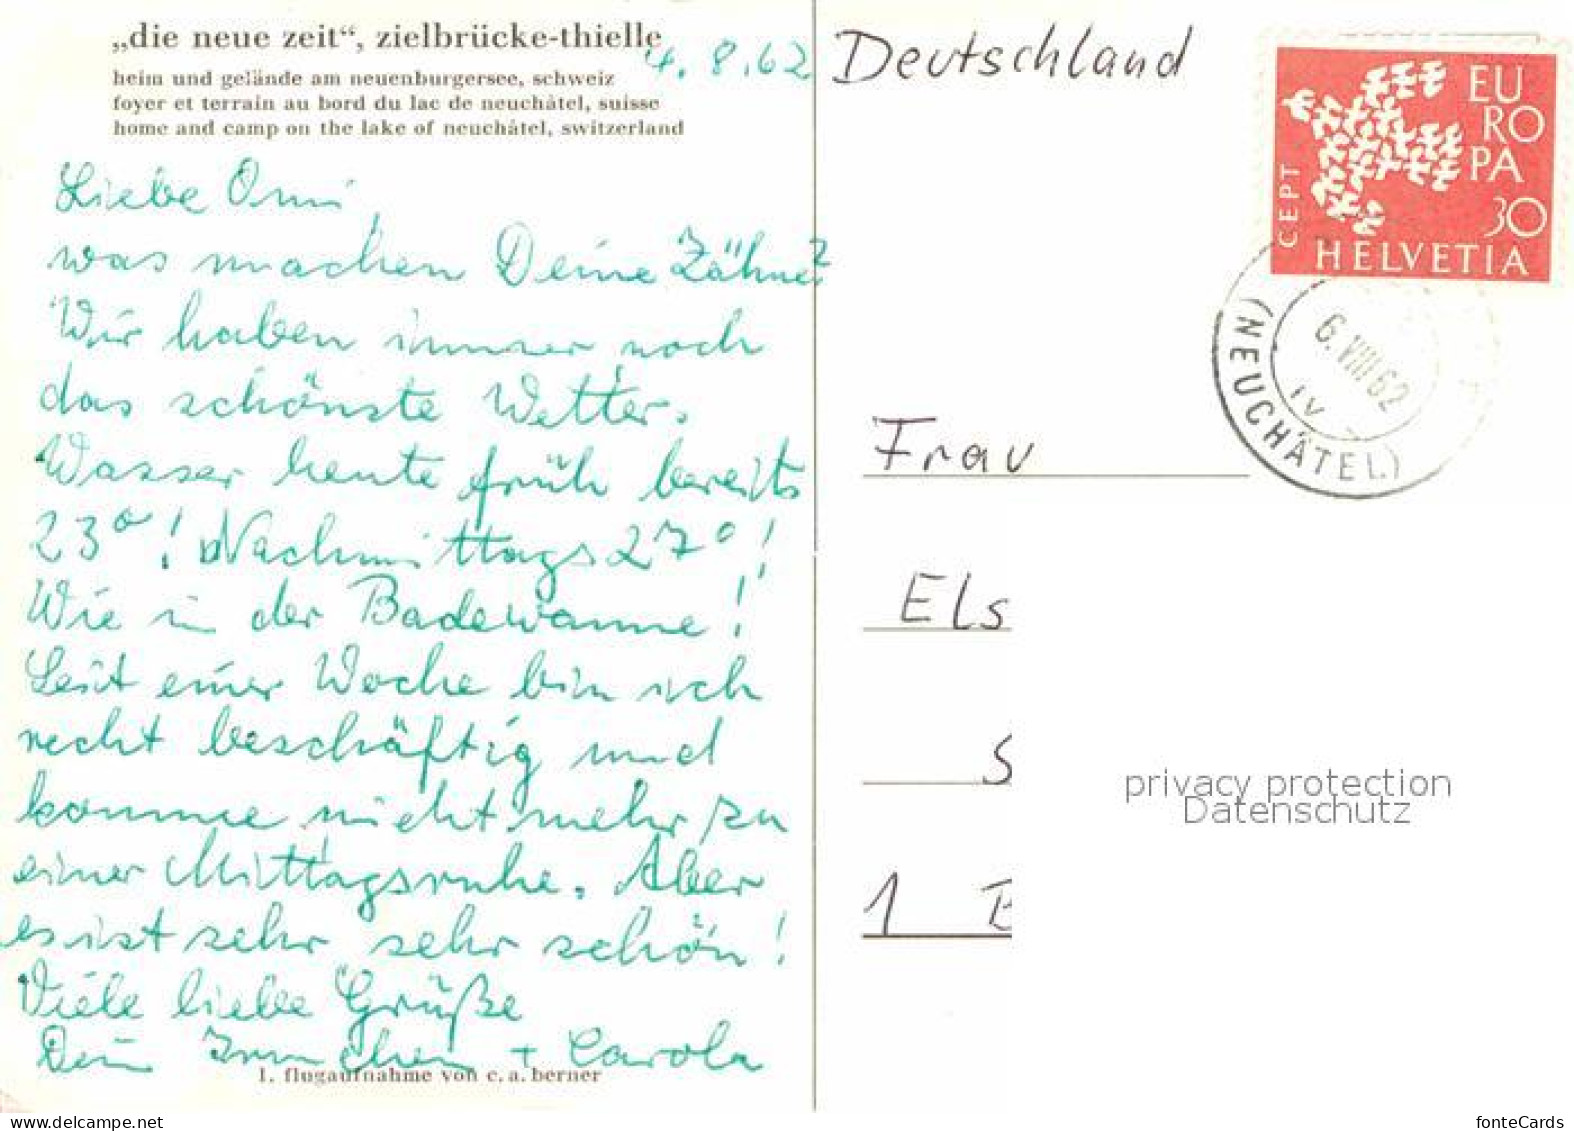 „die neue zeit“, zielbrücke-thielle
heim und gelände am neuenburgersee, schweiz
foyer et terrain au bord du lac de neuchâtel, suisse
home and camp on the lake of neuchâtel, switzerland
4. 8. 62
Liebe Omi,
was machen Deine Zähne?
Wir haben immer noch
das schönste Wetter.
Wasser heute früh bereits
23°! Nachmittags 27°!
Wie in der Badewanne!
Seit einer Woche bin ich
recht beschäftig und
komme nicht mehr zu
einer Mittagsruhe. Aber
es ist sehr sehr schön!
Viele liebe Grüße
Dein Irmchen + Carola
1. flugaufnahme von c. a. berner
Deutschland
CEPT
EU
RO
PA
30
HELVETIA
(NEUCHÂTEL)
6.VIII 62
Frau
Els
S
1 B
privacy protection
Datenschutz
my.delcampe.net
fonteCards